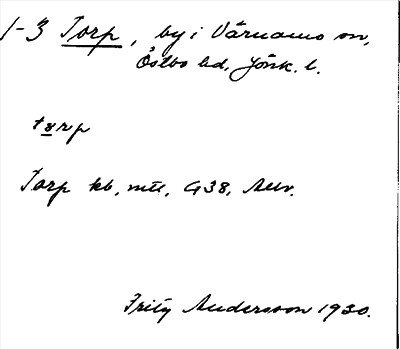 1-3 Torp, by i Värnamo sn,
Östbo hd, Jönk. l.
tɤrp
Torp kb, mtl, G38, Auv.
Fritz Andersson 1930.